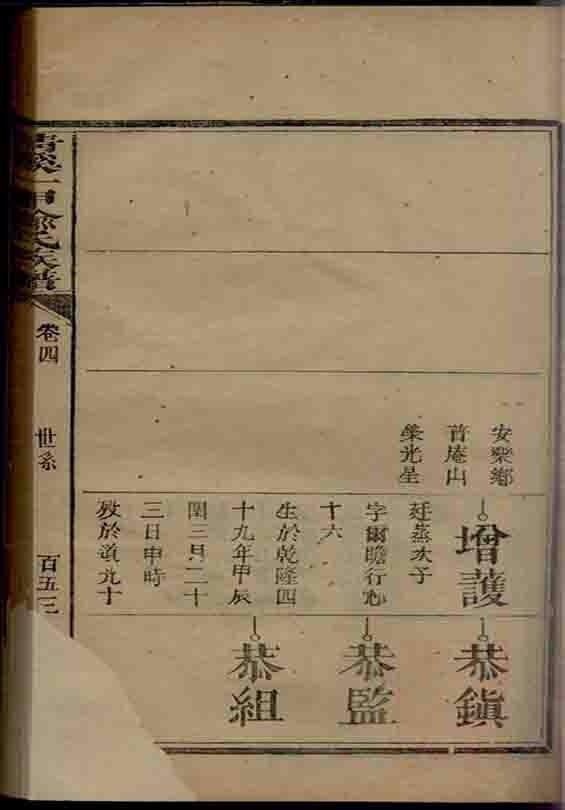 安樂鄉
首庵山
榮光星
增護
廷蒸次子
字爾瞻行
十六
生於乾隆四
十九年甲辰
閏三月二十
三日申時
歿於道光十
恭鎮
恭監
恭組
一甲
氏族譜
卷四
世系
百五三